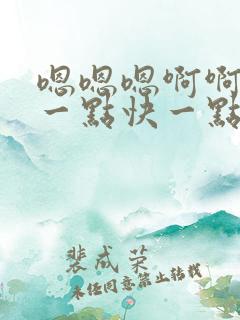 嗯嗯嗯啊啊
一點快一點
裴成荣
未经同意禁止转载